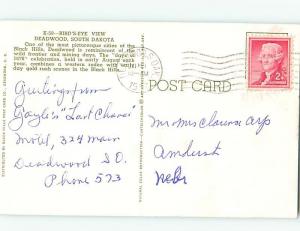 K-59—BIRD'S-EYE VIEW
DEADWOOD, SOUTH DAKOTA
One of the most picturesque cities of the
Black Hills, Deadwood is reminiscent of the
wild frontier and mining days. The "days of
1876" celebration, held in early August each
year, combines a western rodeo with early
day gold rush scenes in the Black Hills.
POST CARD
2¢
Greetings from
Gayle's "Last Chance"
Motel, 324 Main
Deadwood SD.
Phone 573
Mr Mrs Clarence Arp
Amherst
Nebr